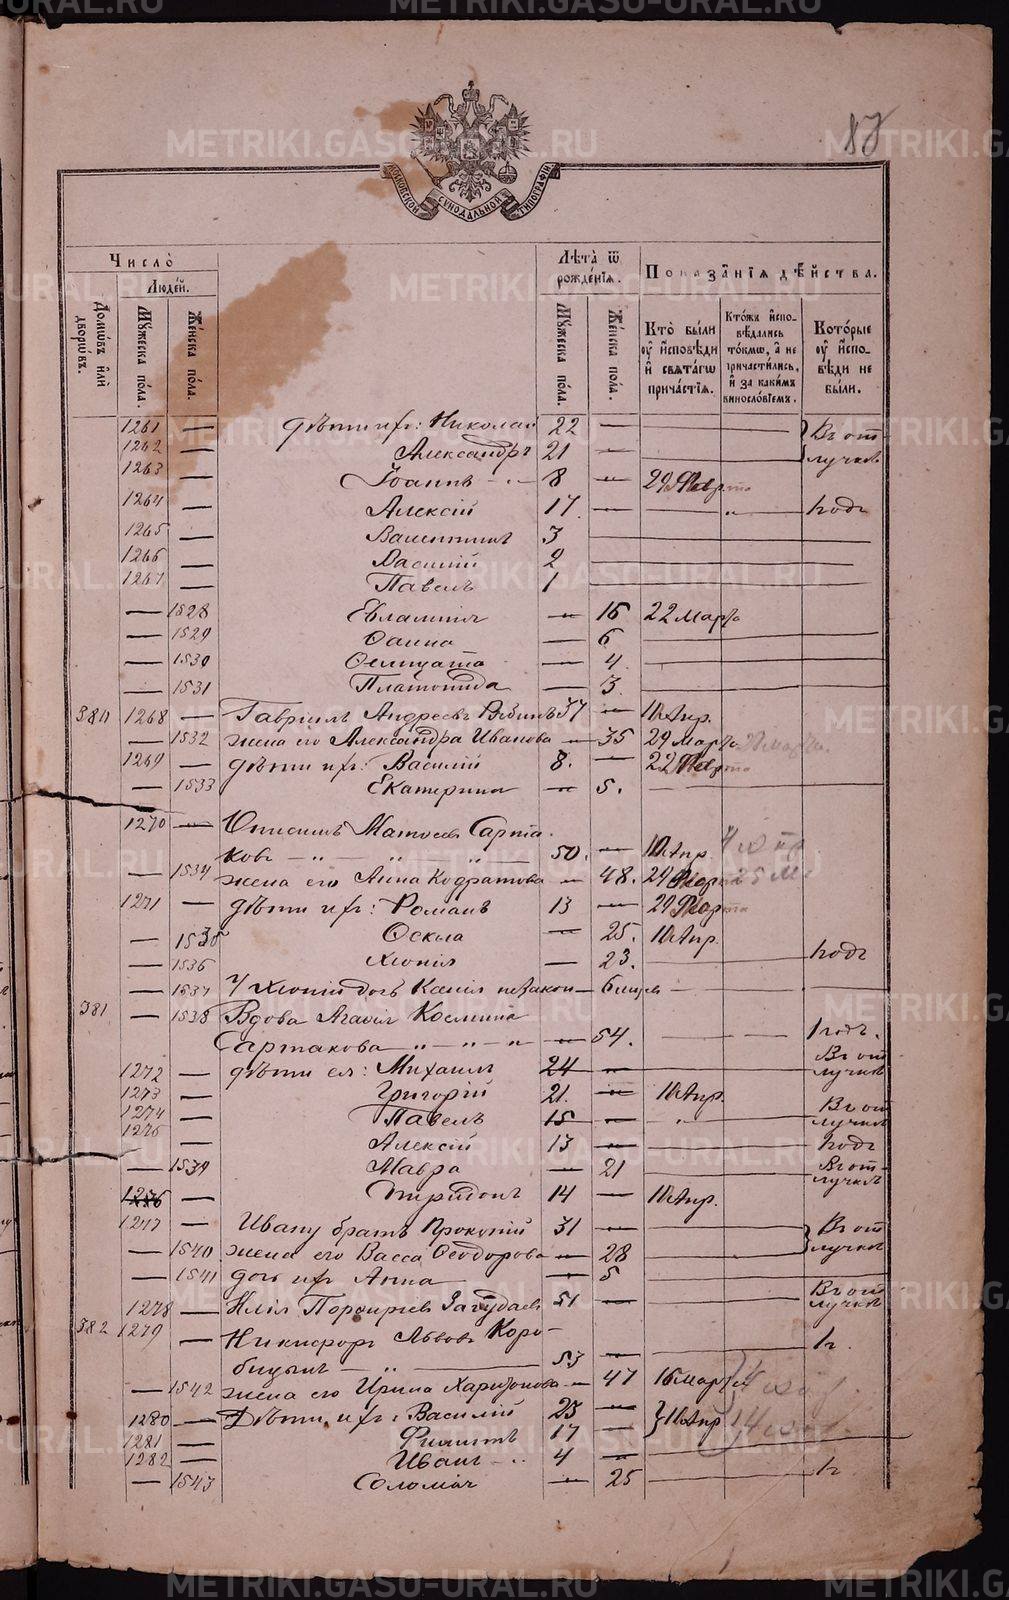 87
МОСКОВСКОЙ СѴНОДАЛЬНОЙ ТИПОГРАФІИ
Число̀
Людéй.
Домѡ́въ и҆лѝ дворѡ́въ.
Мꙋ́жеска по́ла.
Же́нска по́ла.
Лѣ̑та ѿ рождє́нїѧ.
Мꙋ́жеска по́ла.
Же́нска по́ла.
Показа̑нїѧ дѣ́йства.
Кто̀ бы́ли ᲂу҆ и҆сповѣ́ди и҆ свѧта́гѡ прича́стїѧ.
Кто́жъ и҆сповѣ́дались то́кмѡ, а҆ не причасти́лись, и҆ за каки́мъ винослóвїемъ.
Кото́рые ᲂу҆ и҆сповѣ́ди не бы́ли.
1261 — дѣти ихъ: Николай 22 — Въ от-
1262 — Александръ 21 — лучкѣ
1263 — Іоаннъ 8 — 29 Марта
1264 — Алексій 17 — " по д
1265 — Валентинъ 3
1266 — Василій 2
1267 — Павелъ 1
— 1528 Евлампія — 16 22 Марта
— 1529 Фаина — 6
— 1530 — 4
— 1531 Платонида — 3
380 1268 — Гавріилъ Андреевъ 37 — 10 Апр.
— 1532 жена его Александра Иванова — 35 29 Марта
1269 — дѣти ихъ: Василій 8 — 22 Марта
— 1533 Екатерина — 5
1270 — Онисимъ Матѳеевъ Сарта-
ковъ — " — " — " — 50. — 10 Апр.
— 1534 жена его Анна Кодратова — 48. 29 Марта
1271 — дѣти ихъ: Романъ 13 — 29 Марта
— 1535 Ѳекла — 25. 10 Апр.
— 1536 Хіонія — 23. по д
— 1537 У Хіоніи дочь незакон — 6 мѣся
381 — 1538 Вдова Агафія Космина
Сартакова — " — " — " — 54. по д.
1272 — дѣти ея: Михаилъ 24 — Въ от лучкѣ
1273 — Григорій 21. — 10 Апр.
1274 — Павелъ 15 — " Въ от лучкѣ
1275 — Алексій 13 — по д
— 1539 Мавра — 21 Въ от- лучкѣ
1276 — Спиридонъ 14 — 10 Апр.
1277 — Ивану братъ Прокопій 31 — Въ от
— 1540 жена его Васса Ѳеодорова — 28 лучкѣ
— 1541 дочь ихъ Анна — 5
1278 — Илія Порфирьевъ 51 — Въ от лучкѣ
382 1279 — Никифоръ Львовъ Коро-
бицынъ — " — 53 —
— 1542 жена его Ирина Харитонова — 47 16 Марта
1280 — Дѣти ихъ: Василій 23 — 10 Апр
1281 — Филиппъ 17 —
1282 — Иванъ — " 4 —
— 1543 Соломія — 25
METRIKI.GASO-URAL.RU